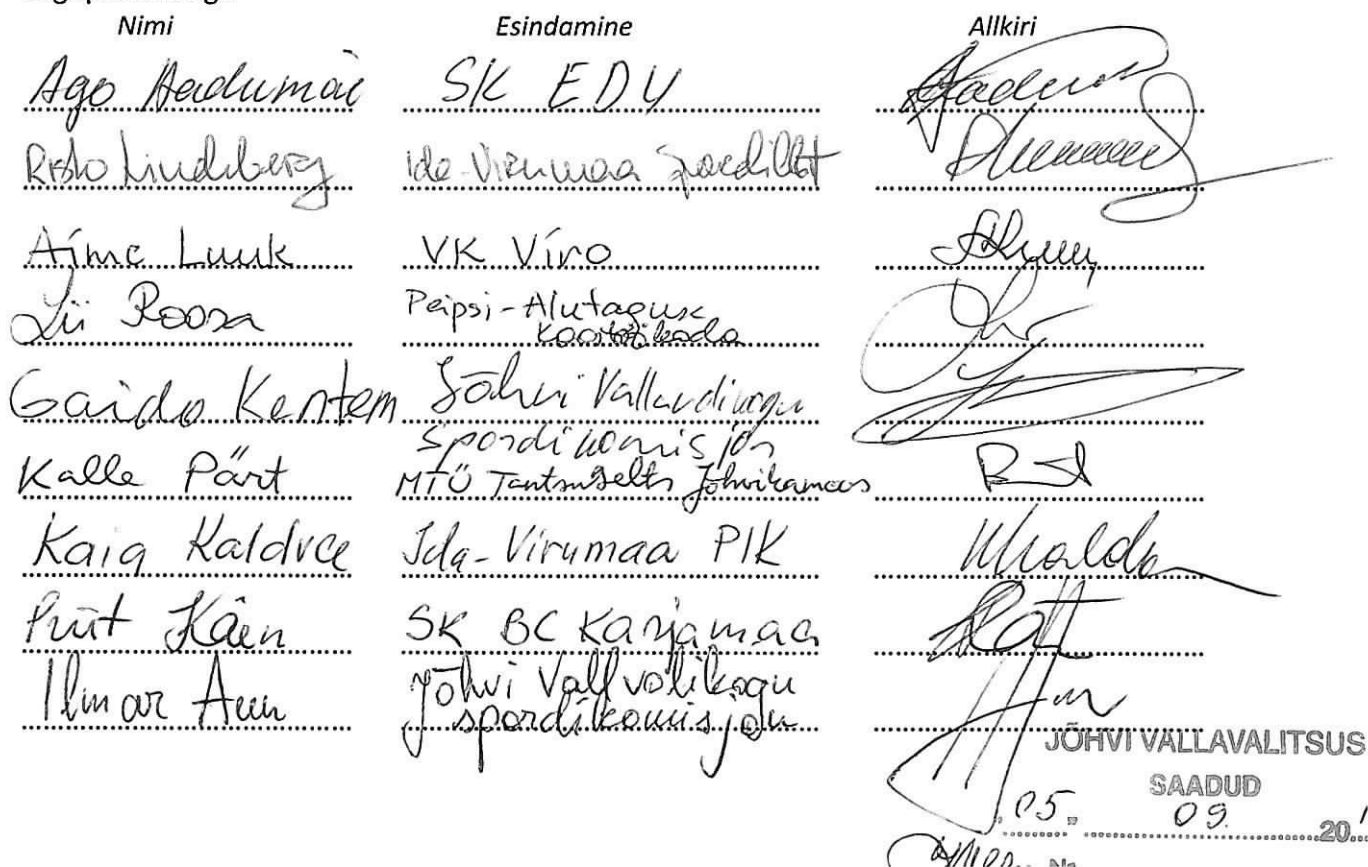 Nimi Esindamine Allkiri
Ago Aadumäe SK EDU
Risto Lindeberg Ida-Virumaa Spordiliit
Aime Luuk VK Viro
Lii Roosa Peipsi-Alutaguse
Koostöökoda
Gaido Kentem Jõhvi Vallavolikogu
Spordikomisjon
Kalle Pärt MTÜ Tantsuselts Jõhvikamoos
Kaia Kaldvee Ida-Virumaa PIK
Priit Käen SK BC Karjamaa
Ilmar Aun Jõhvi Vallvolikogu
spordikomisjon
JÕHVI VALLAVALITSUS
SAADUD
"05" 09. 20